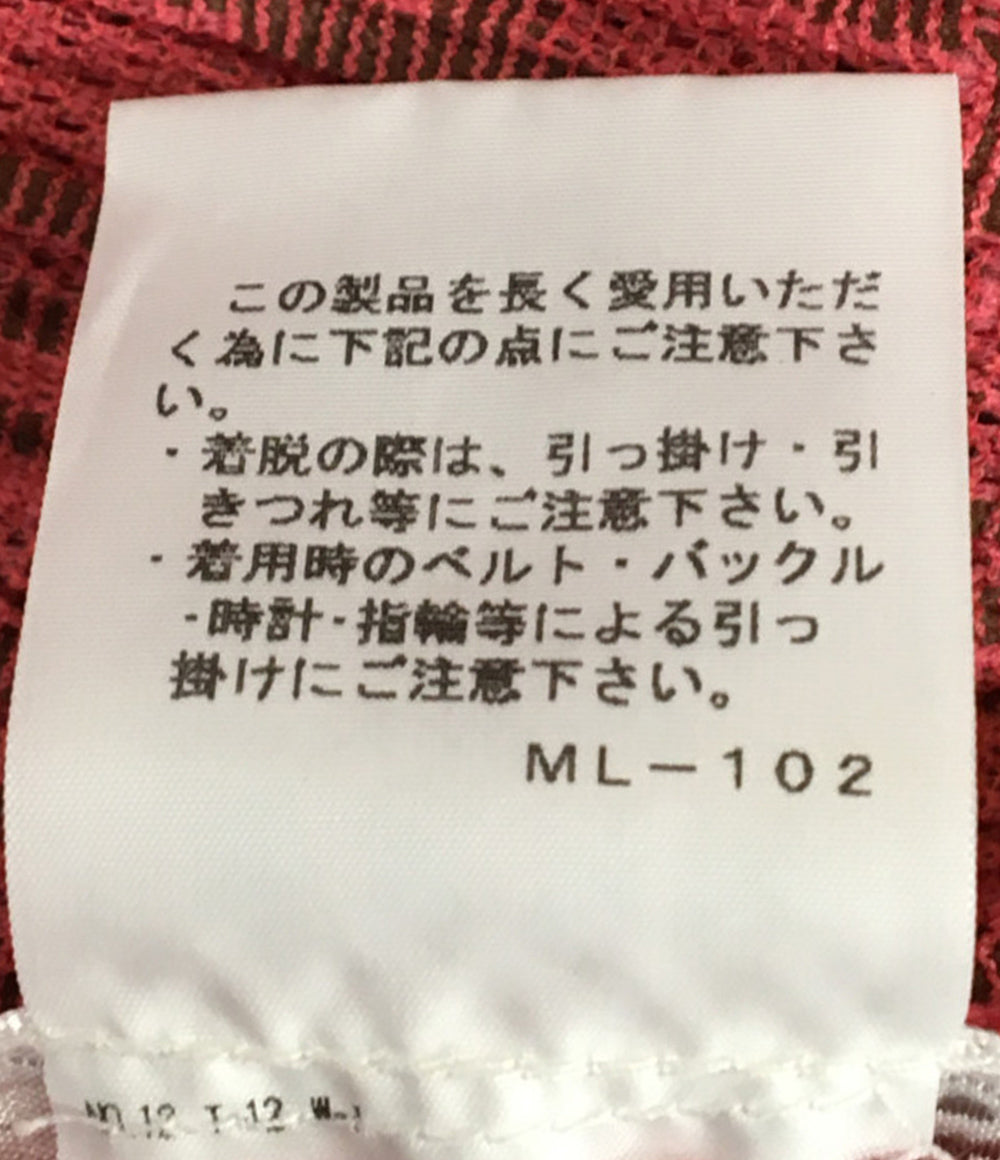 この製品を長く愛用いただ
く為に下記の点にご注意下さ
い。
・着脱の際は、引っ掛け・引
きつれ等にご注意下さい。
・着用時のベルト・バックル
・時計・指輪等による引っ
掛けにご注意下さい。
ML－102
12 T-12 W-